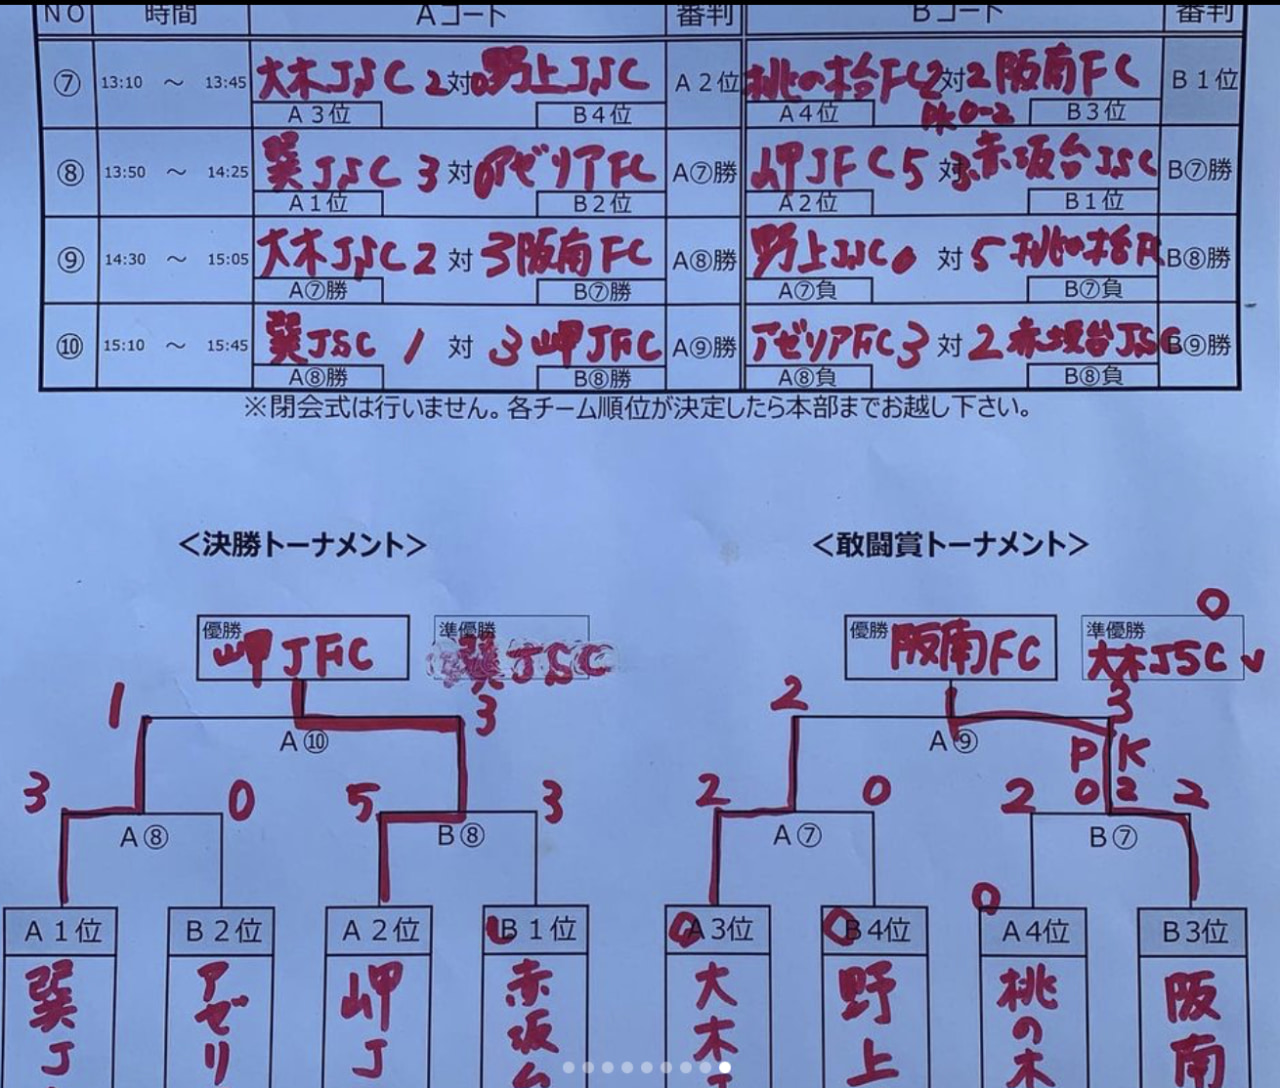 NO 時間 Aコート 審判 Bコート 審判
⑦ 13:10 ～ 13:45 大木JSC 2 対 0 野上JSC A2位 桃の木台FC 2 対 2 阪南FC B1位
A3位 B4位 A4位 PK 0-2 B3位
⑧ 13:50 ～ 14:25 巽JSC 3 対 0 アゼリアFC A⑦勝 岬JFC 5 対 3 赤坂台JSC B⑦勝
A1位 B2位 A2位 B1位
⑨ 14:30 ～ 15:05 大木JSC 2 対 3 阪南FC A⑧勝 野上JSC 0 対 5 桃の木台F B⑧勝
A⑦勝 B⑦勝 A⑦負 B⑦負
⑩ 15:10 ～ 15:45 巽JSC 1 対 3 岬JFC A⑨勝 アゼリアFC 3 対 2 赤坂台JSC B⑨勝
A⑧勝 B⑧勝 A⑧負 B⑧負
※閉会式は行いません。各チーム順位が決定したら本部までお越し下さい。
＜決勝トーナメント＞ ＜敢闘賞トーナメント＞
優勝 岬JFC 準優勝 巽JSC 優勝 阪南FC 準優勝 大木JSC
1 3 2 3
A⑩ A⑨ PK
3 0 5 3 2 0 2 0 2 2
A⑧ B⑧ A⑦ B⑦
A1位 B2位 A2位 B1位 A3位 B4位 A4位 B3位
巽J
アゼリ
岬J
赤坂台
大木J
野上
桃の木
阪南